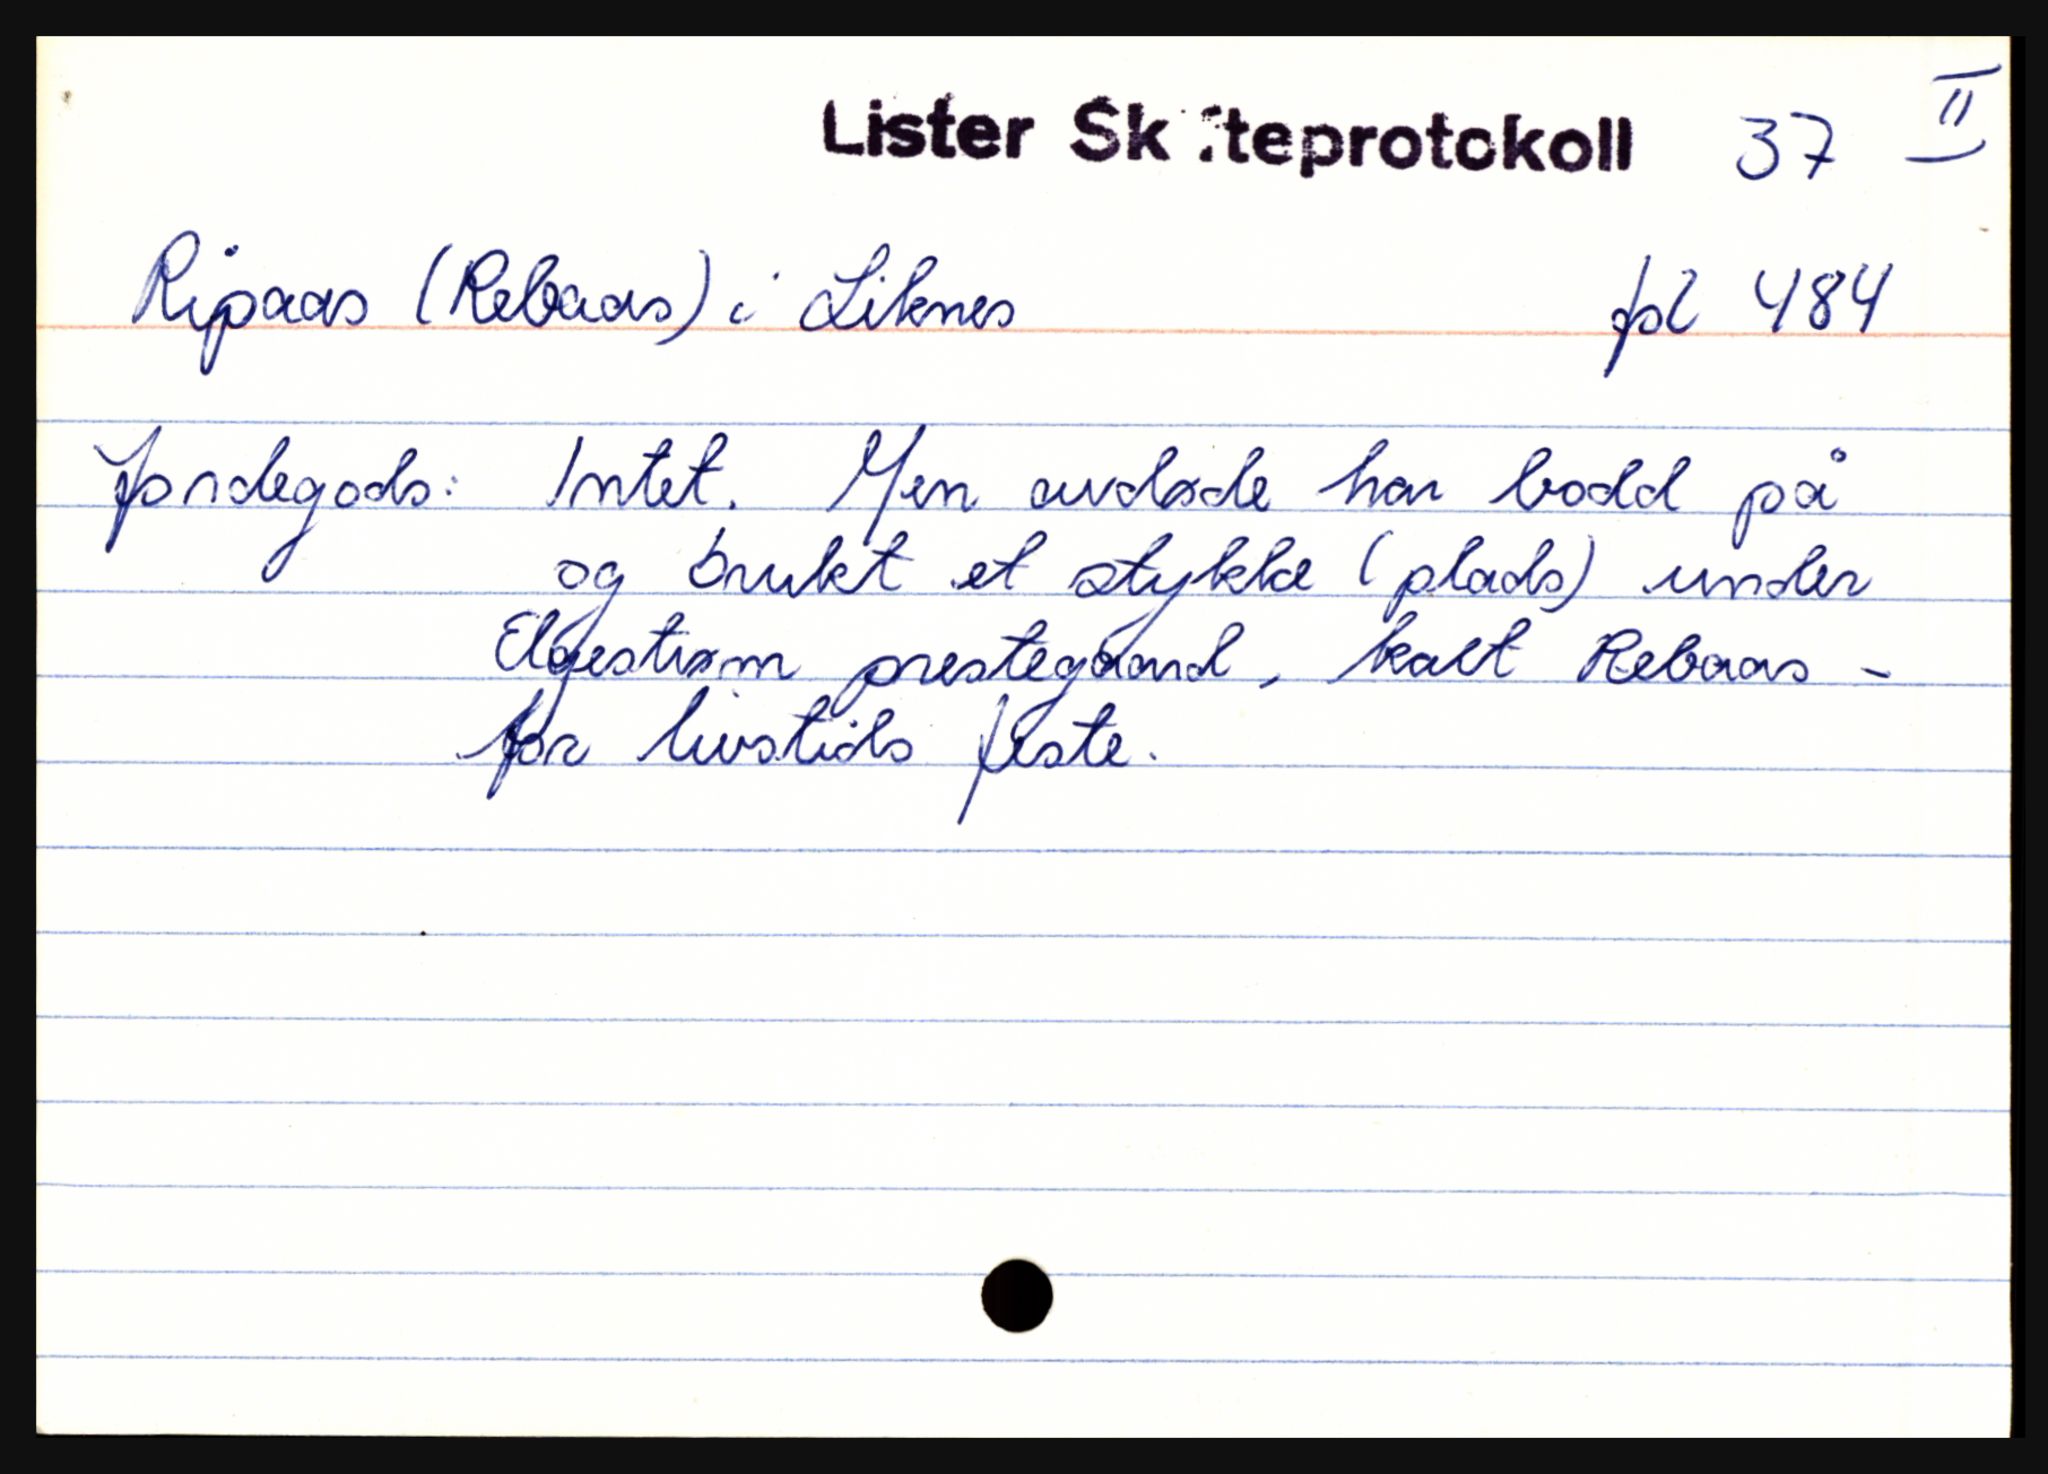 Lister Skifteprotokoll 37 II
Ripaas (Rebaas) i Liknes fol 484
Jordegods: Intet. Men avdøde har bodd på
og brukt et stykke (plads) under
Elgestrøm prestegaard, kalt Rebaas -
for livstids feste.